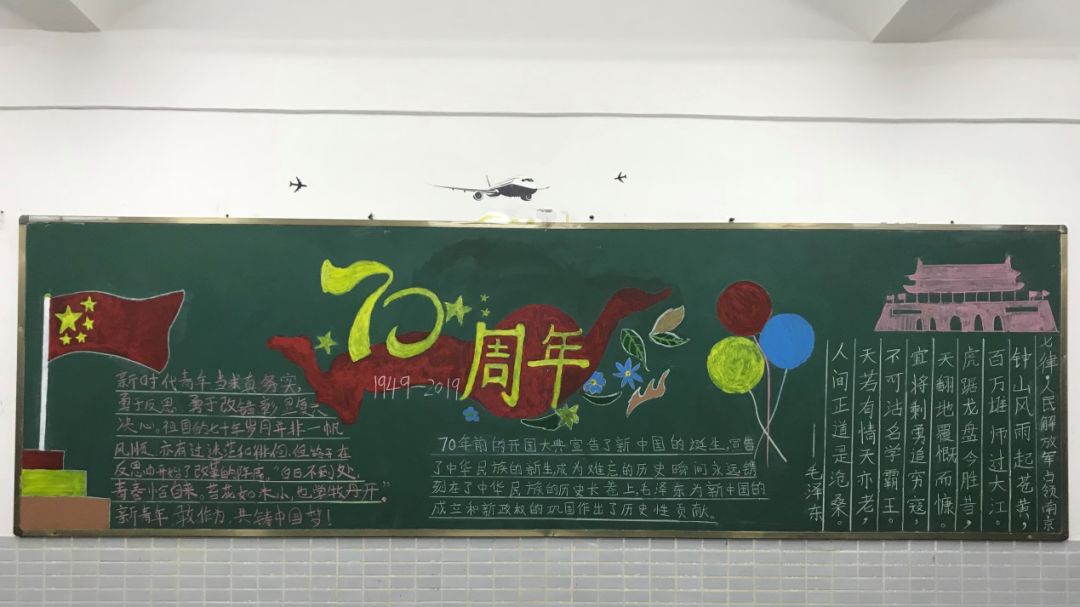 70周年
1949-2019
新时代青年当求真务实,
勇于反思 勇于改错
决心,祖国的七十年岁月并非一帆
风顺,亦有过迷茫和徘徊,但始于在
反思,开始了改革的阵痛,"白日不到处,
青春恰自来。苔花如米小,也学牡丹开"。
新青年 敢作为,共铸中国梦!
70年前的开国大典宣告了新中国的诞生,宣告
了中华民族的新生成为难忘的历史瞬间永远镌
刻在了中华民族的历史长卷上,毛泽东为新中国的
成立和新政权的巩固作出了历史性贡献.
七律·人民解放军占领南京
钟山风雨起苍黄,
百万雄师过大江.
虎踞龙盘今胜昔,
天翻地覆慨而慷。
宜将剩勇追穷寇,
不可沽名学霸王。
天若有情天亦老,
人间正道是沧桑。
——毛泽东